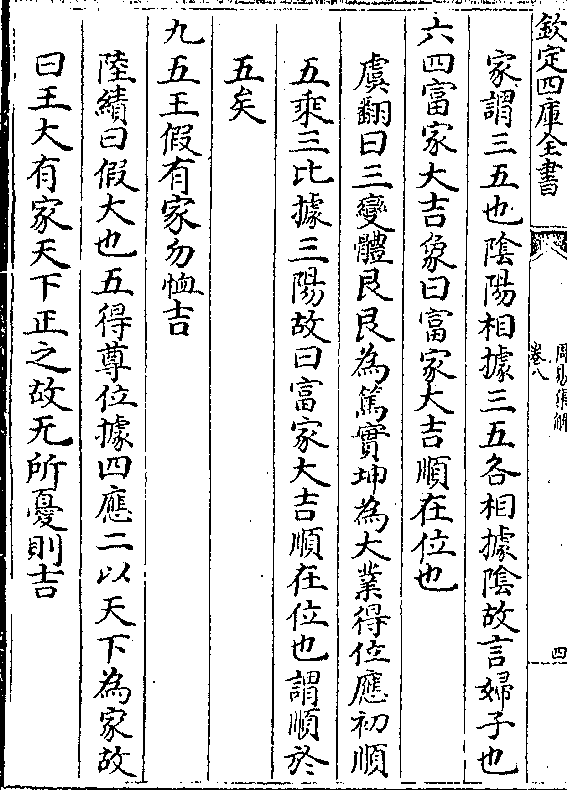 欽定四庫全書
周易集解
卷八
四
家謂三五也陰陽相據三五各相據陰故言婦子也
六四富家大吉象曰富家大吉順在位也
虞翻曰三變體艮艮為篤實坤為大業得位應初順
五乘三比據三陽故曰富家大吉順在位也謂順於
五矣
九五王假有家勿恤吉
陸績曰假大也五得尊位據四應二以天下為家故
曰王大有家天下正之故无所憂則吉